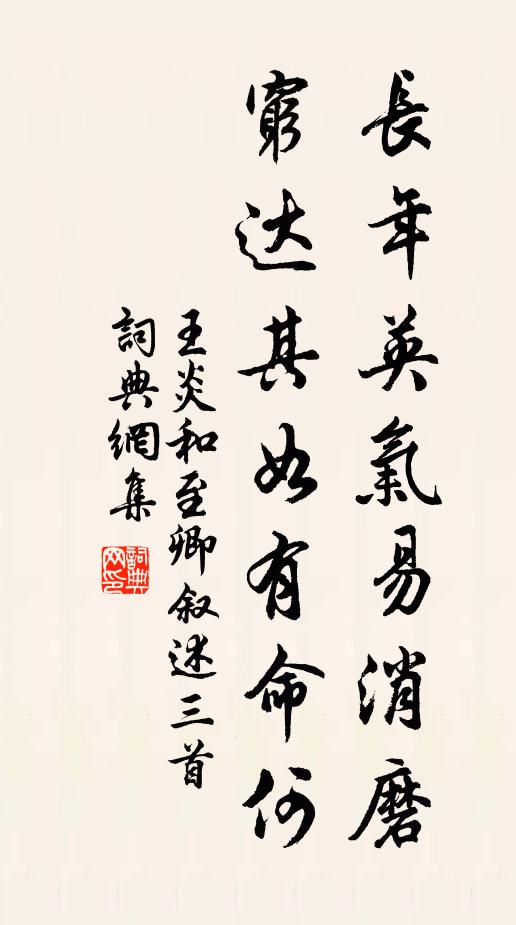 長年英氣易消磨
窮达其如有命何
王炎和至卿叙述三首
詞典網集
詞典网印